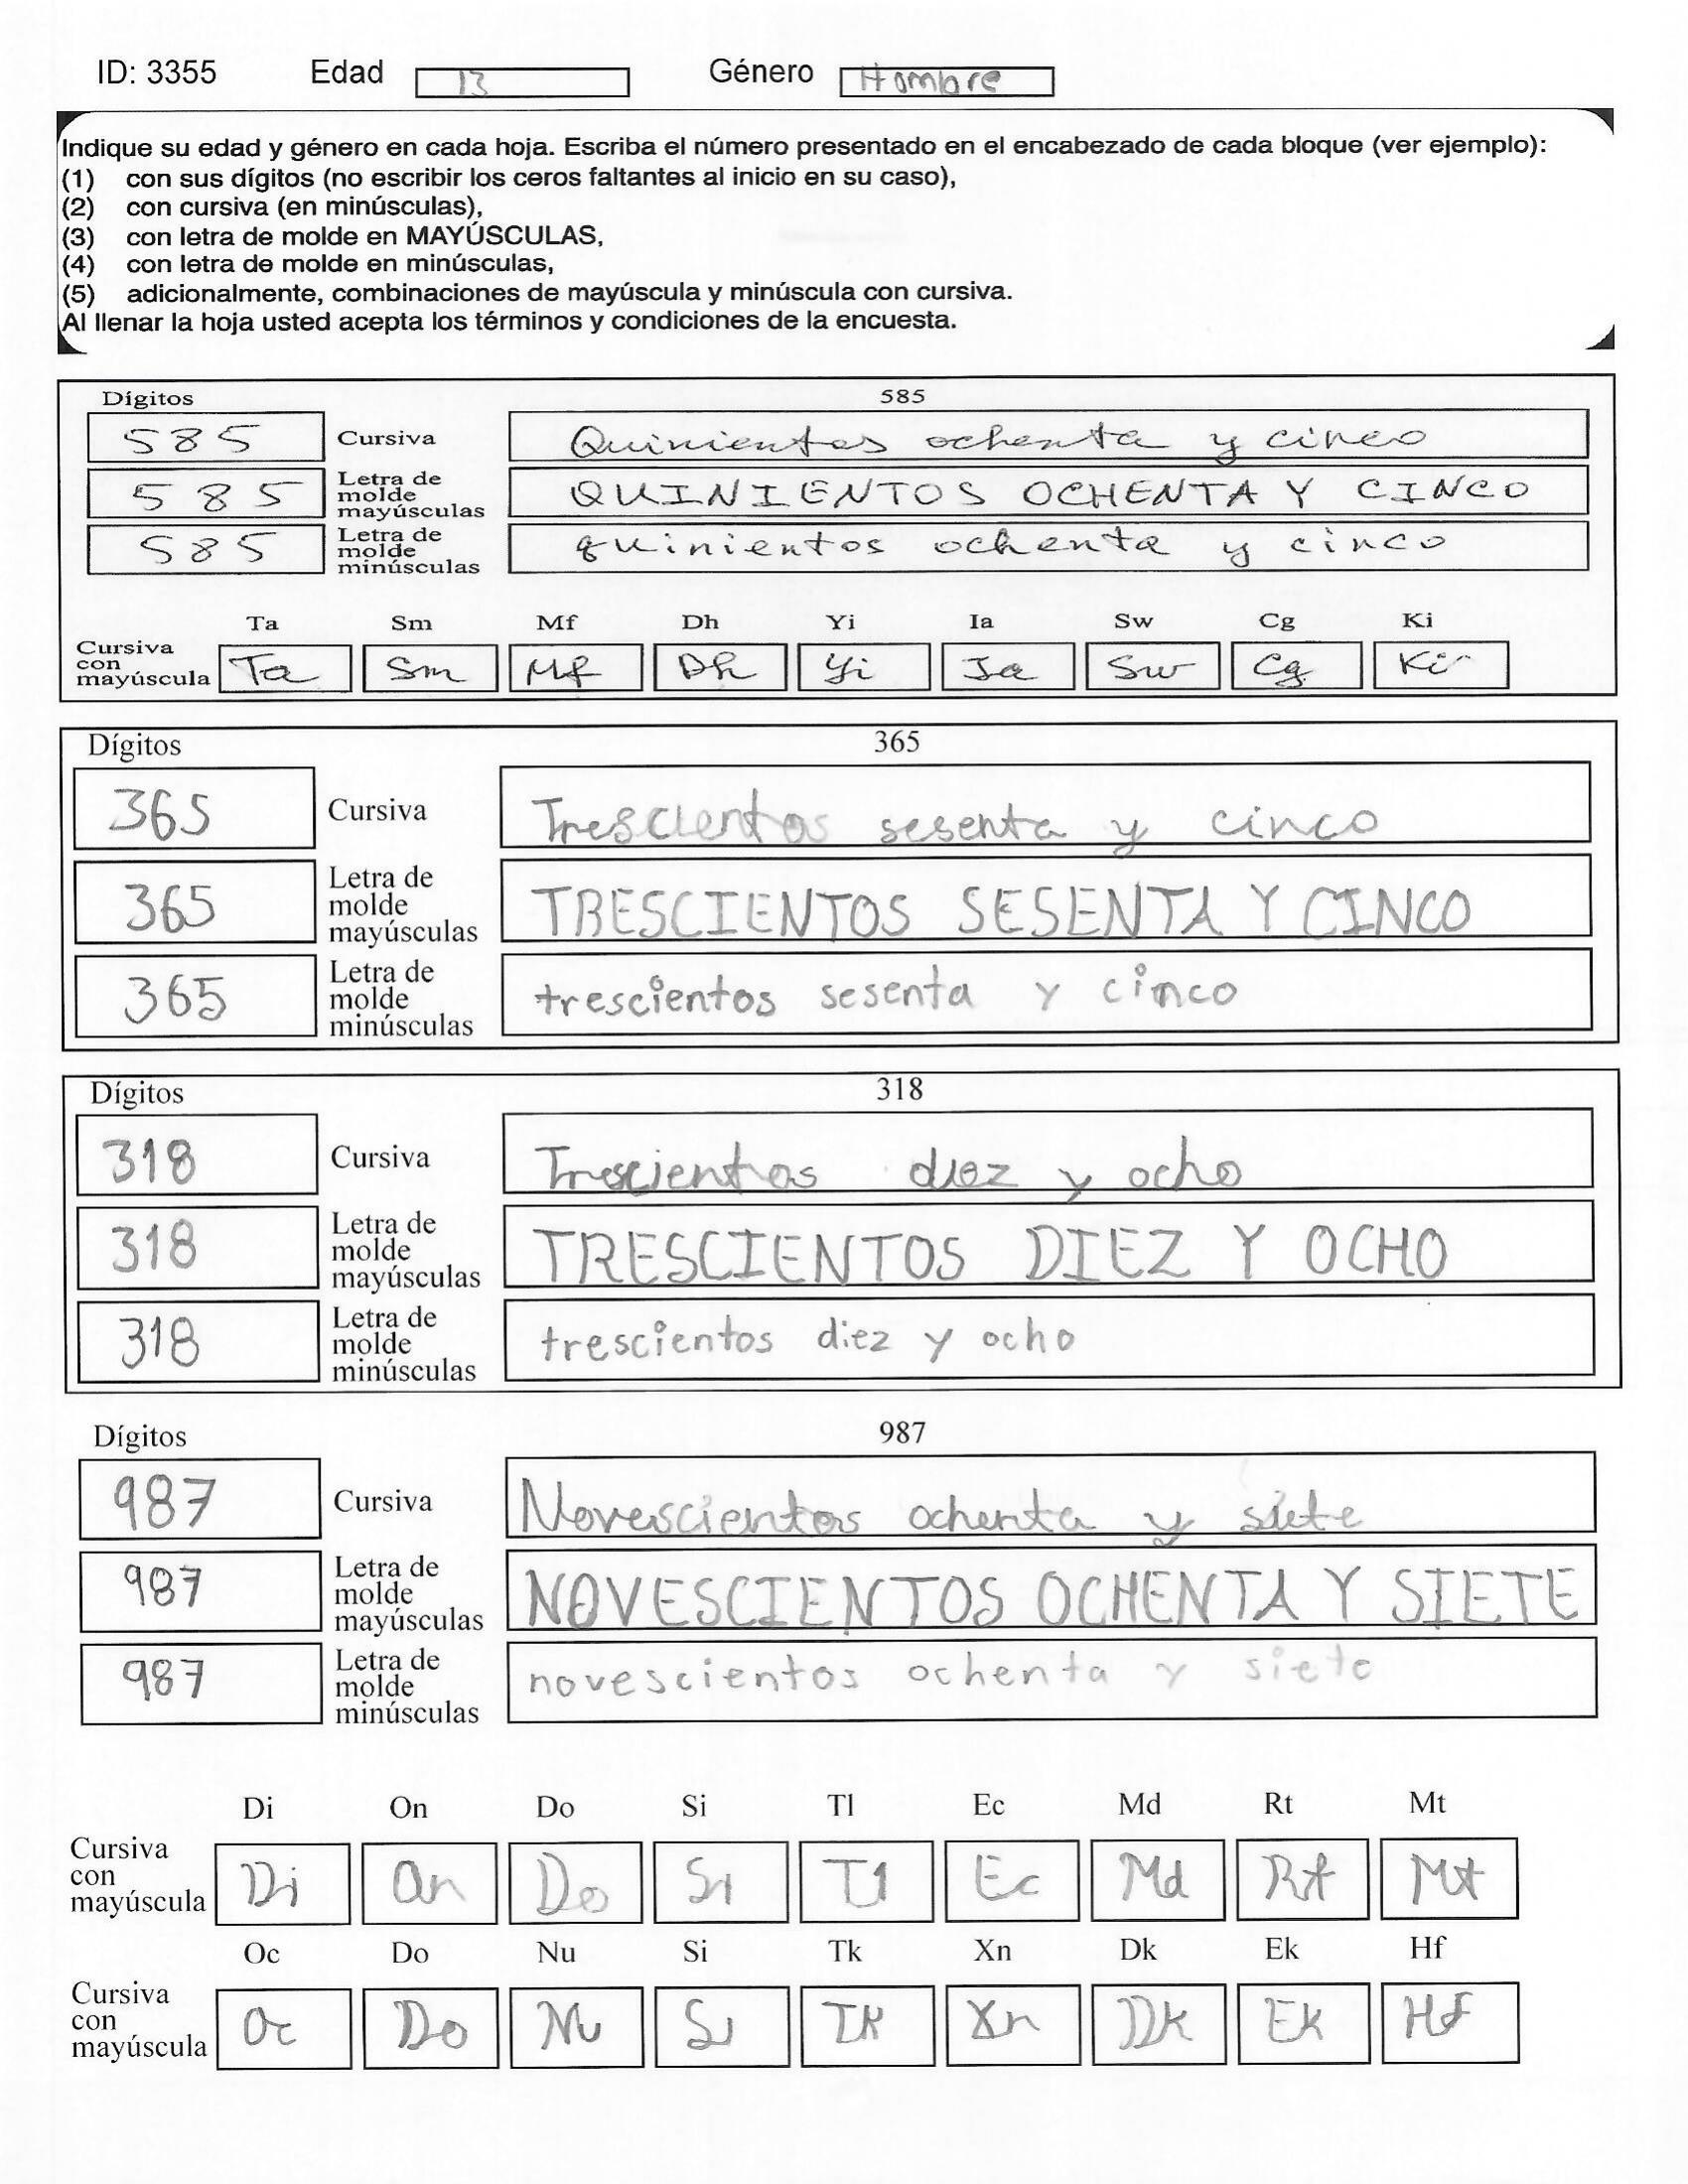 ID: 3355 Edad 13 Género Hombre
Indique su edad y género en cada hoja. Escriba el número presentado en el encabezado de cada bloque (ver ejemplo):
(1) con sus dígitos (no escribir los ceros faltantes al inicio en su caso),
(2) con cursiva (en minúsculas),
(3) con letra de molde en MAYÚSCULAS,
(4) con letra de molde en minúsculas,
(5) adicionalmente, combinaciones de mayúscula y minúscula con cursiva.
Al llenar la hoja usted acepta los términos y condiciones de la encuesta.
Dígitos 585
585 Cursiva Quinientos ochenta y cinco
585 Letra de molde mayúsculas QUINIENTOS OCHENTA Y CINCO
585 Letra de molde minúsculas quinientos ochenta y cinco
Ta Sm Mf Dh Yi Ia Sw Cg Ki
Cursiva con mayúscula Ta Sm Mf Dh Yi Ia Sw Cg Ki
Dígitos 365
365 Cursiva Trescientos sesenta y cinco
365 Letra de molde mayúsculas TRESCIENTOS SESENTA Y CINCO
365 Letra de molde minúsculas trescientos sesenta y cinco
Dígitos 318
318 Cursiva Trescientos diez y ocho
318 Letra de molde mayúsculas TRESCIENTOS DIEZ Y OCHO
318 Letra de molde minúsculas trescientos diez y ocho
Dígitos 987
987 Cursiva Novescientos ochenta y siete
987 Letra de molde mayúsculas NOVESCIENTOS OCHENTA Y SIETE
987 Letra de molde minúsculas novescientos ochenta y siete
Di On Do Si Tl Ec Md Rt Mt
Cursiva con mayúscula Di On Do Si Tl Ec Md Rt Mt
Oc Do Nu Si Tk Xn Dk Ek Hf
Cursiva con mayúscula Oc Do Nu Si Tk Xn Dk Ek Hf